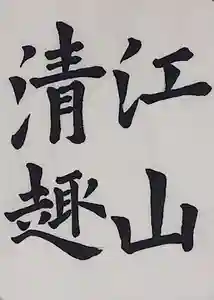 江山
清趣